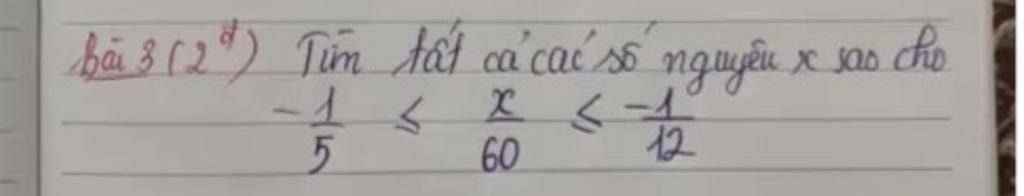 bài 3 (2đ) Tìm tất cả các số nguyên x sao cho
-1/5 ≤ x/60 ≤ -1/12